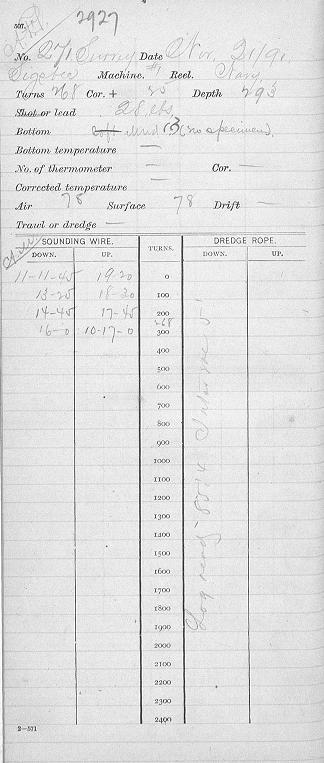 2927
No. 271 Survey Date Nov. 21/91
Machine. #1 Reel. Navy
Turns 268 Cor. + 25 Depth 293
Shot or lead 28 lbs
Bottom Soft Mud (no specimen)
Bottom temperature —
No. of thermometer — Cor. —
Corrected temperature —
Air 78 Surface 78 Drift —
Trawl or dredge —
SOUNDING WIRE. TURNS. DREDGE ROPE.
DOWN. UP. DOWN. UP.
11-11-45 19-20 0
13-25 18-30 100
14-45 17-45 200
268
16-0 10-17-0 300
400
500
600
700
800
900
1000
1100
1200
1300
1400
1500
1600
1700
1800
1900
2000
2100
2200
2300
2400
Log readg 85.4
2—571